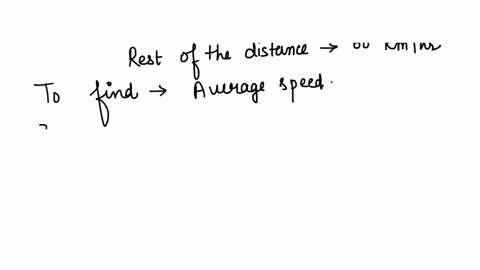 Rest of the distance →
To find → Average speed.